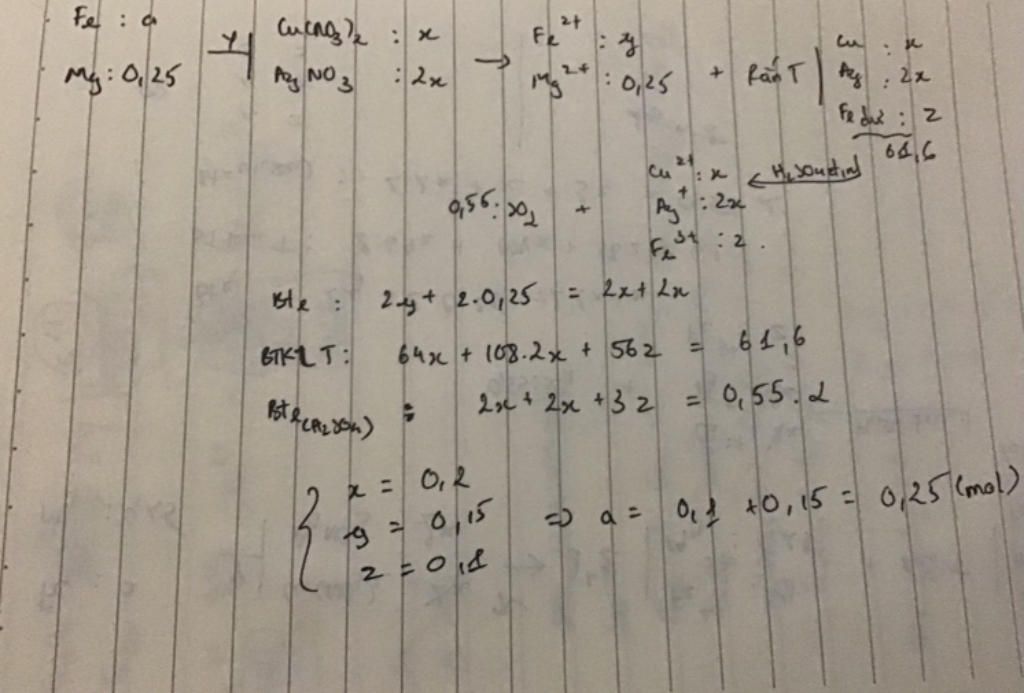 Fe : a
Mg : 0,25
Y
Cu(NO3)2 : x
AgNO3 : 2x
→
Fe2+ : y
Mg2+ : 0,25
+ Rắn T
Cu : x
Ag : 2x
Fe dư : z
61,6
0,55 : SO2 +
Cu2+ : x
Ag+ : 2x
Fe3+ : z.
←
Bte : 2y + 2.0,25 = 2x + 2x
BTKL T : 64x + 108.2x + 56z = 61,6
Bte(H2SO4) : 2x + 2x + 3z = 0,55.2
x = 0,2
y = 0,15 => a = 0,1 + 0,15 = 0,25 (mol)
z = 0,1